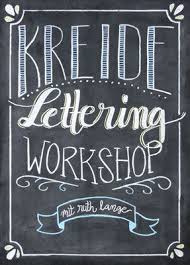 KREIDE
Lettering
WORKSHOP
mit ruth lange